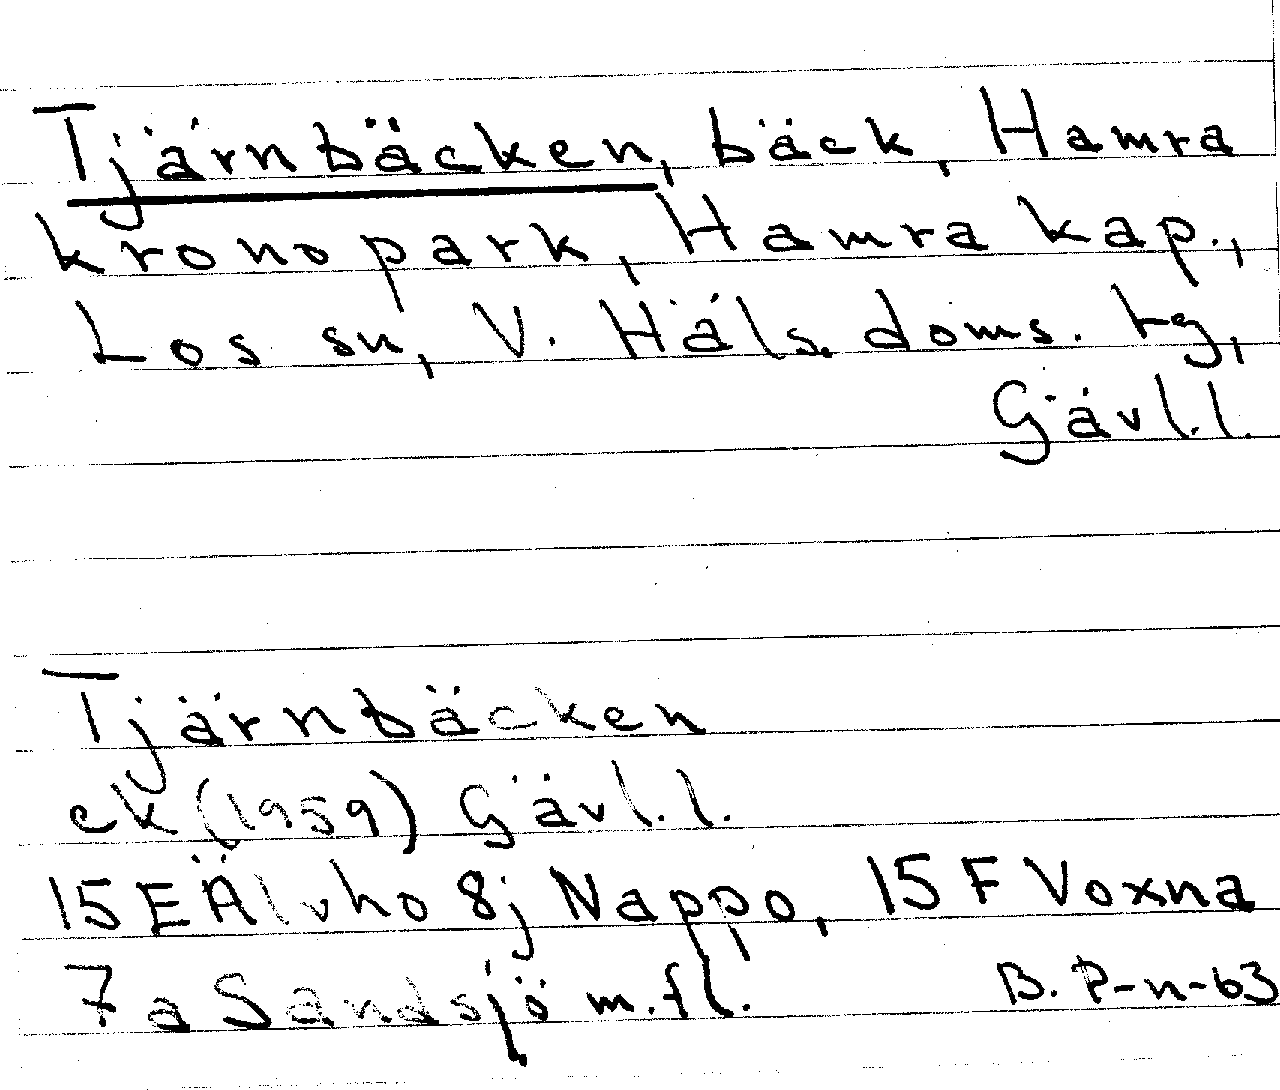 Tjärnbäcken, bäck, Hamra
kronopark, Hamra kap.,
Los sn, V. Häls. doms. tg,
Gävl.l.
Tjärnbäcken
ek (1959) Gävl.l.
15 E Älvho 8j Nappo, 15 F Voxna
7a Sandsjö m.fl. B. P-n-63